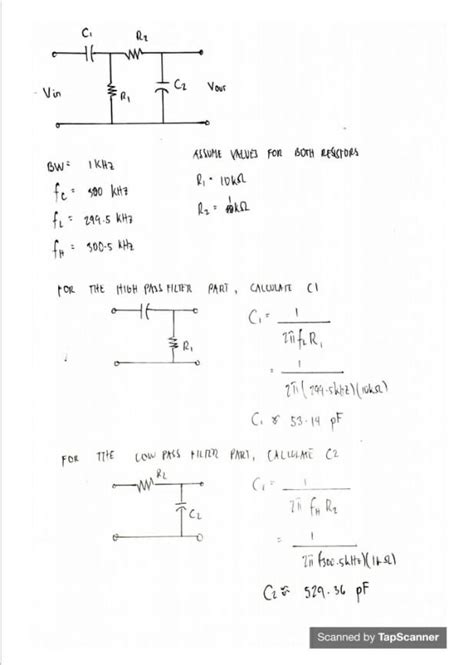 C1 R2
Vin R1 C2 Vout
BW = 1 kHz
fc = 300 kHz
fL = 299.5 kHz
fH = 300.5 kHz
ASSUME VALUES FOR BOTH RESISTORS
R1 = 10kΩ
R2 = 1kΩ
FOR THE HIGH PASS FILTER PART, CALCULATE C1
R1
C1 = 1
2π fL R1
= 1
2π (299.5kHz)(10kΩ)
C1 ≈ 53.14 pF
FOR THE LOW PASS FILTER PART, CALCULATE C2
R2
C2
C1 = 1
2π fH R2
= 1
2π (300.5kHz)(1kΩ)
C2 ≈ 529.36 pF
Scanned by TapScanner